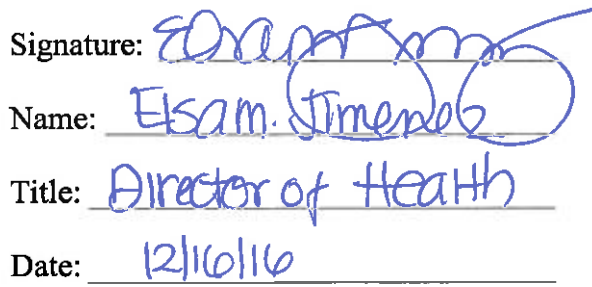 Signature:
Name: Elsa m. Jimenez
Title: Director of Health
Date: 12/16/16